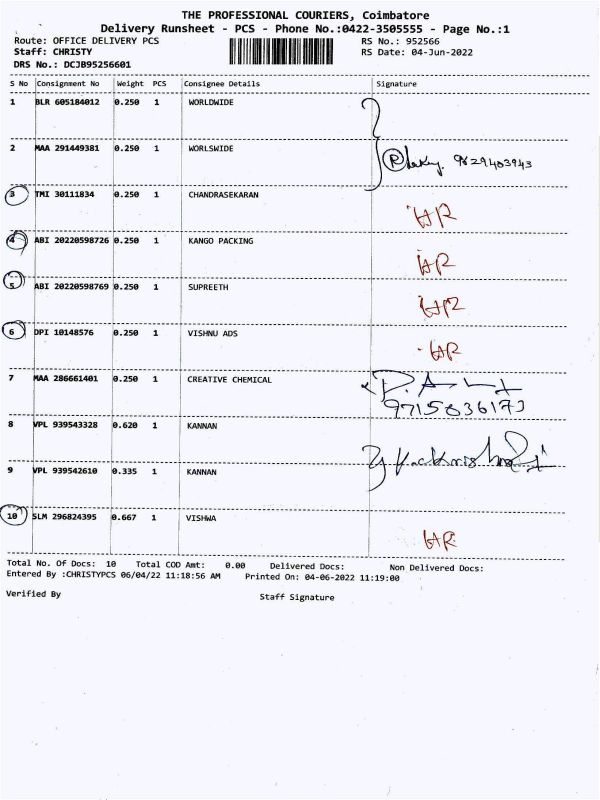 THE PROFESSIONAL COURIERS, Coimbatore
Delivery Runsheet - PCS - Phone No.:0422-3505555 - Page No.:1
Route: OFFICE DELIVERY PCS RS No.: 952566
Staff: CHRISTY RS Date: 04-Jun-2022
DRS No.: DCJB95256601
S No Consignment No Weight PCS Consignee Details Signature
1 BLR 605184012 0.250 1 WORLDWIDE
2 MAA 291449381 0.250 1 WORLSWIDE 9629403943
3 TMI 30111834 0.250 1 CHANDRASEKARAN HR
4 ABI 20220598726 0.250 1 KANGO PACKING HR
5 ABI 20220598769 0.250 1 SUPREETH HR
6 DPI 10148576 0.250 1 VISHNU ADS HR
7 MAA 286661401 0.250 1 CREATIVE CHEMICAL
9715836173
8 VPL 939543328 0.620 1 KANNAN
9 VPL 939542610 0.335 1 KANNAN
10 SLM 296824395 0.667 1 VISHWA HR
Total No. Of Docs: 10 Total COD Amt: 0.00 Delivered Docs: Non Delivered Docs:
Entered By :CHRISTYPCS 06/04/22 11:18:56 AM Printed On: 04-06-2022 11:19:00
Verified By Staff Signature